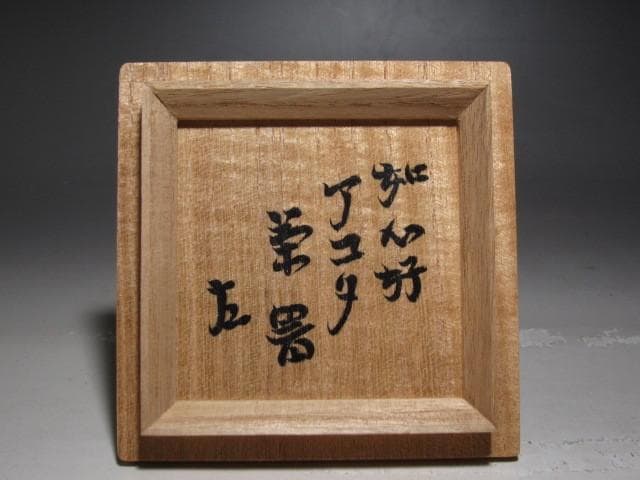 如心好
アコタ
茶器
左